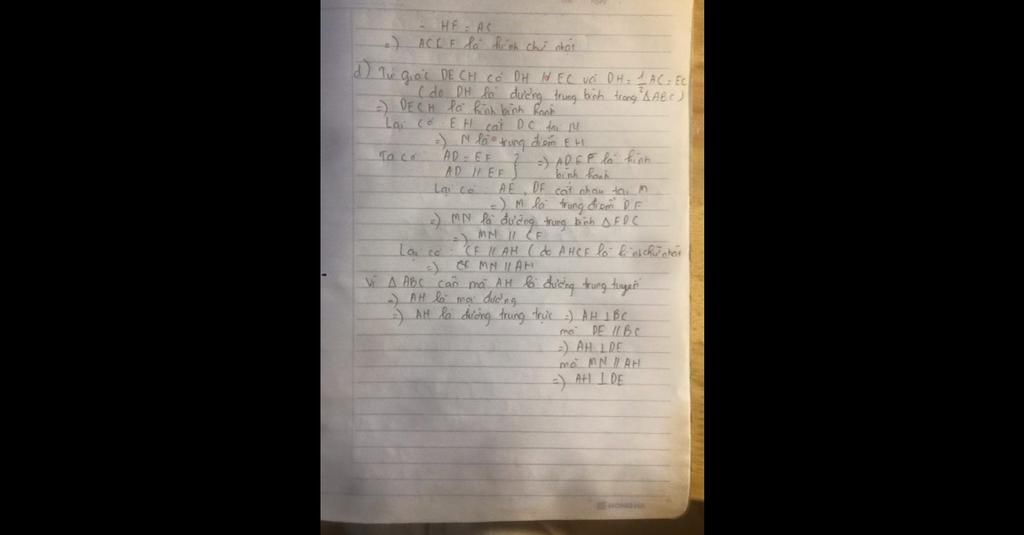 - HF = AC
=) AC[ F là hình chữ nhật
d) Tứ giác DECH có DH // EC và DH = 1/2 AC = EC
( do DH là đường trung bình trong ΔABC )
=) DECH là hình bình hành
Lại có EH cắt DC tại N
=) N là trung điểm EH
Ta có AD = EF } =) ADEF là hình
AD // EF } bình hành
Lại có AE, DF cắt nhau tại M
=) M là trung điểm DF
=) MN là đường trung bình ΔFDC
=) MN // CF
Lại có CF // AH ( do AHCF là hình chữ nhật
=) MN // AH
Vì ΔABC cân mà AH là đường trung tuyến
=) AH là mọi đường
=) AH là đường trung trực =) AH ⊥ BC
mà DE // BC
=) AH ⊥ DE
mà MN // AH
=) AH ⊥ DE
HONG HA